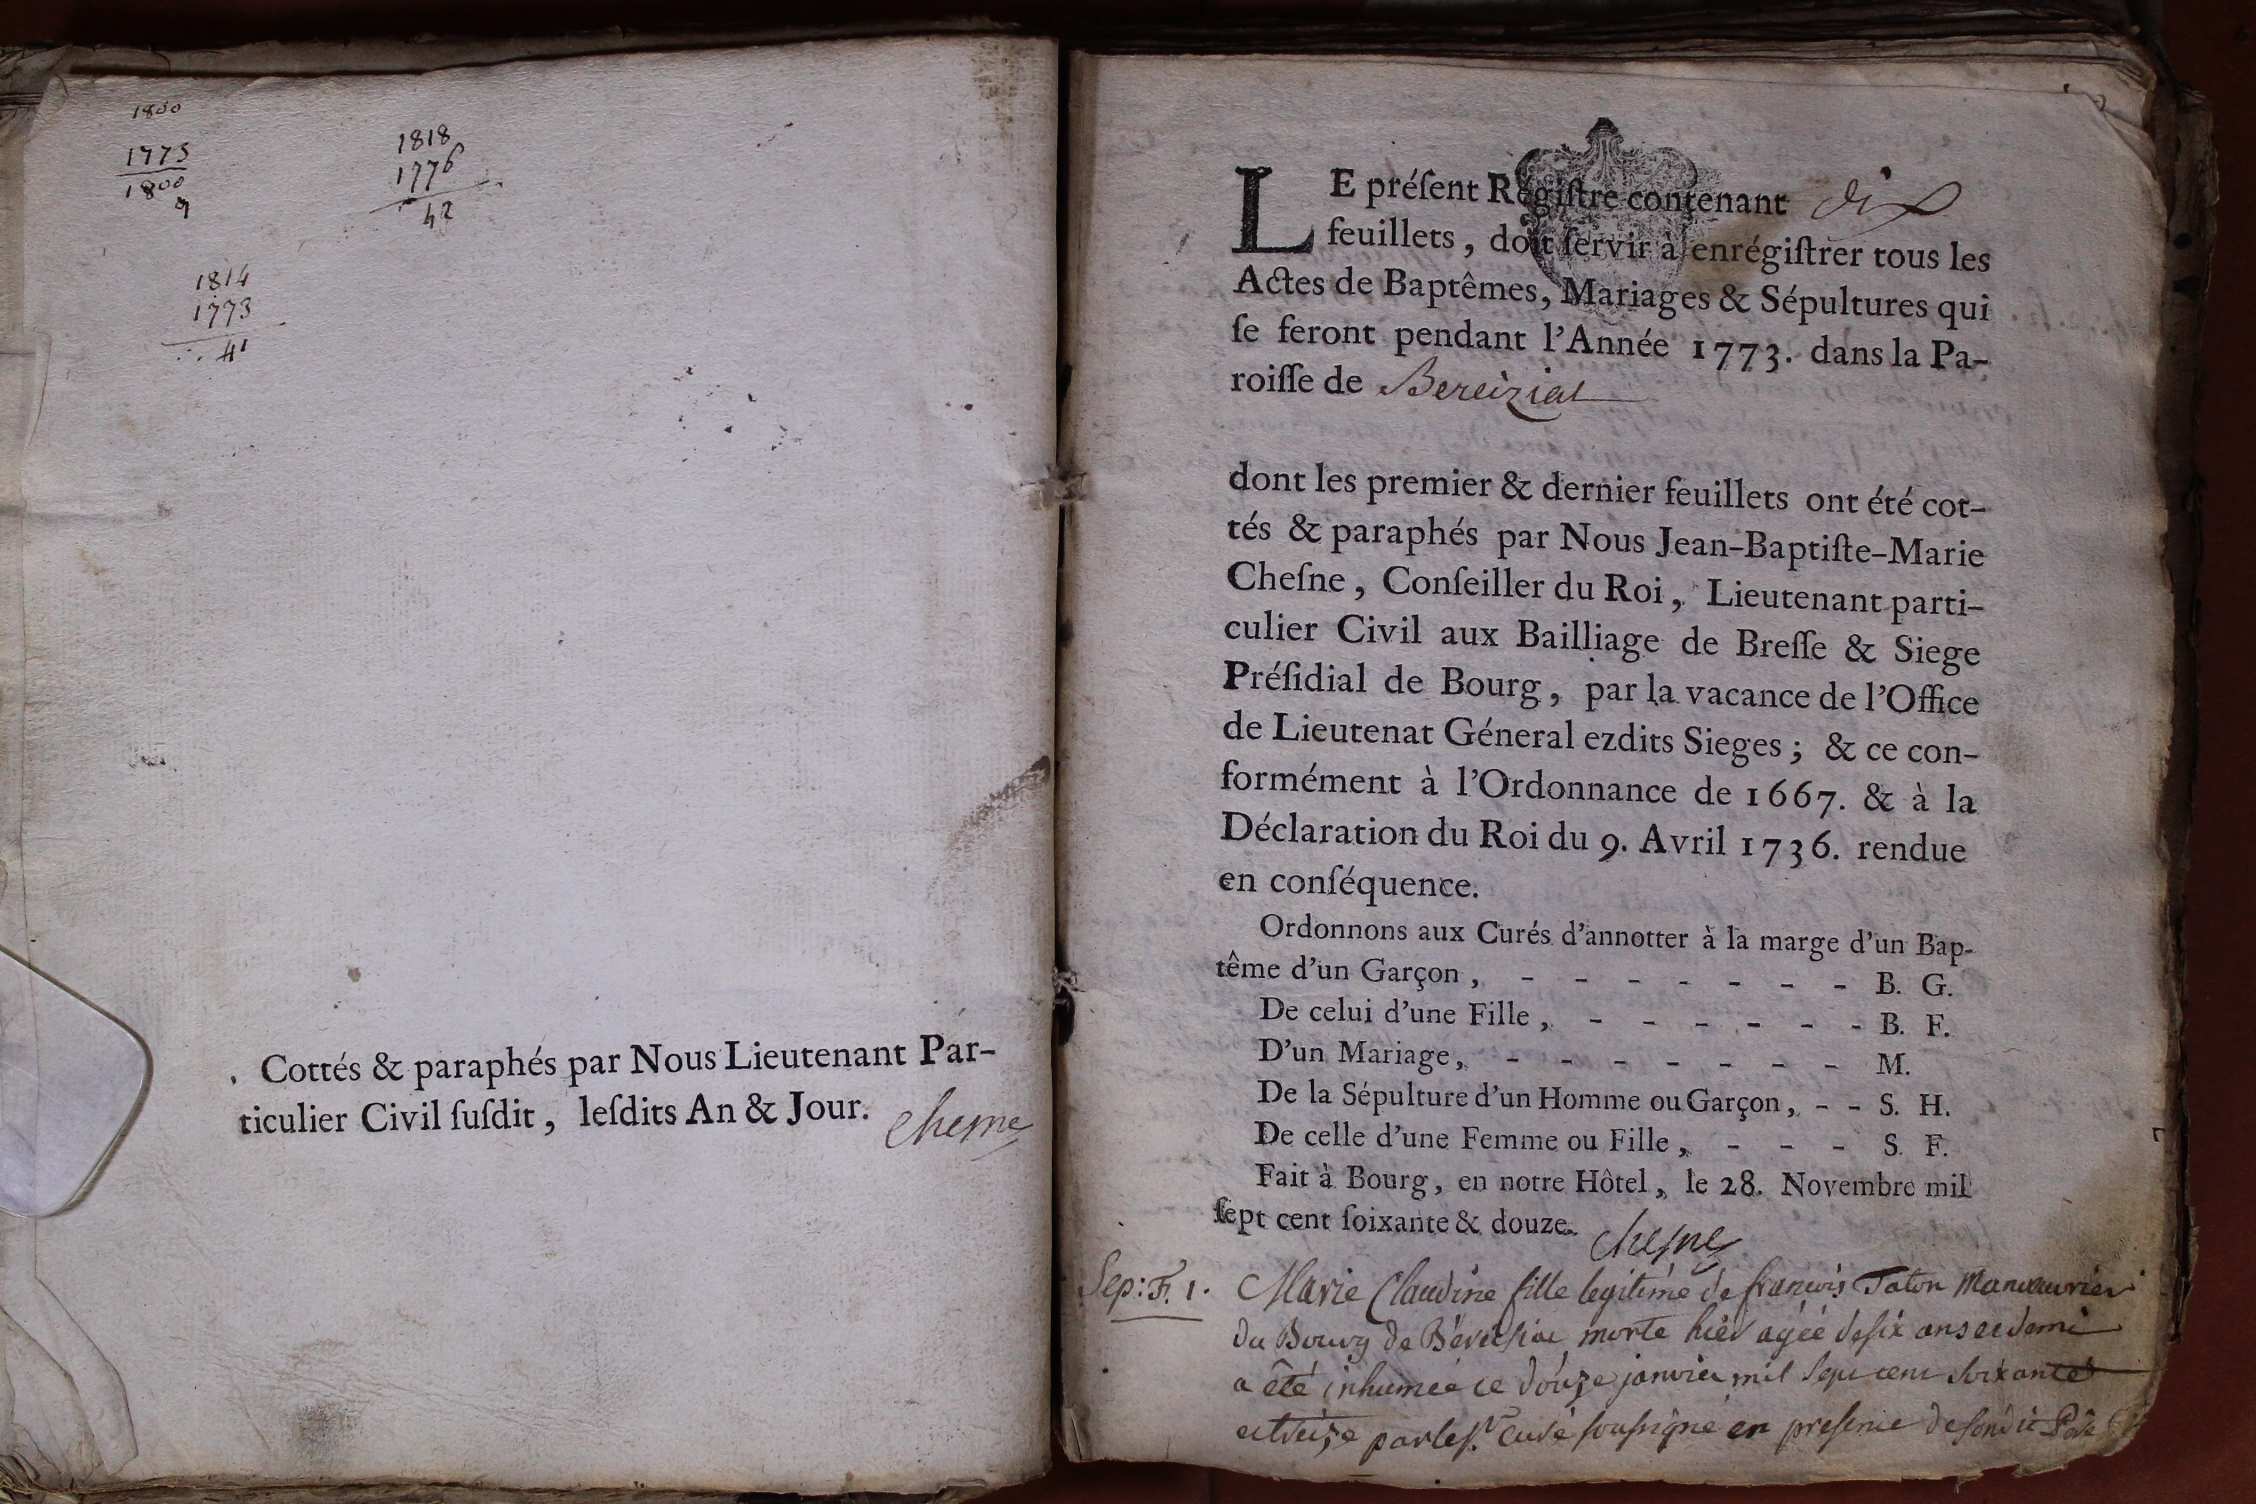 1800
1773
1800
9
1818
1776
42
1814
1773
41
Cottés & paraphés par Nous Lieutenant Par-
ticulier Civil ſuſdit, leſdits An & Jour. Chesne
LE préſent Regiſtre contenant dix
feuillets, doit ſervir à enrégiſtrer tous les
Actes de Baptêmes, Mariages & Sépultures qui
ſe feront pendant l'Année 1773. dans la Pa-
roiſſe de Bereiziat
dont les premier & dernier feuillets ont été cot-
tés & paraphés par Nous Jean-Baptiſte-Marie
Cheſne, Conſeiller du Roi, Lieutenant parti-
culier Civil aux Bailliage de Breſſe & Siege
Préſidial de Bourg, par la vacance de l'Office
de Lieutenat Géneral ezdits Sieges; & ce con-
formément à l'Ordonnance de 1667. & à la
Déclaration du Roi du 9. Avril 1736. rendue
en conſéquence.
Ordonnons aux Curés d'annotter à la marge d'un Bap-
tême d'un Garçon, - - - - - - - B. G.
De celui d'une Fille, - - - - - - B. F.
D'un Mariage, - - - - - - - M.
De la Sépulture d'un Homme ou Garçon, - - S. H.
De celle d'une Femme ou Fille, - - - S. F.
Fait à Bourg, en notre Hôtel, le 28. Novembre mil
ſept cent ſoixante & douze. Chesne
Sep: F. 1. Marie Claudine fille legitime de francois Manouvrier
du Bourg de morte hier agée de six ans et demi
a été inhumée ce douze janvier mil sept cent soixante
et treize par le sr. curé soussigné en presence de son dit Père